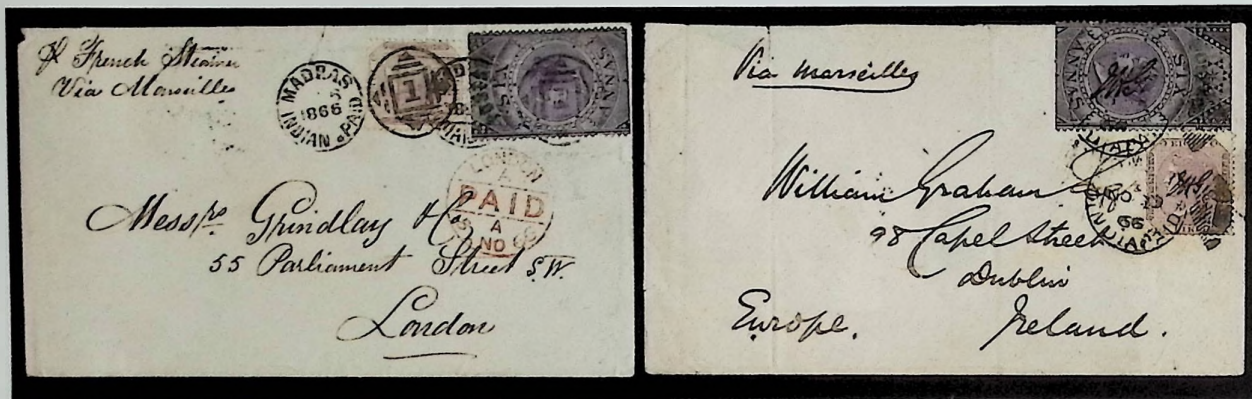 pr French Steamer
Via Marseilles
MADRAS
1866
INDIAN PAID
1
SIX ANNAS
LONDON
A
PAID
A
NO
Messrs Grindlay & Co
55 Parliament Street S.W.
London
Via Marseilles
SIX ANNAS
66
INDIA PAID
William Graham
98 Capel Street
Dublin
Europe. Ireland.